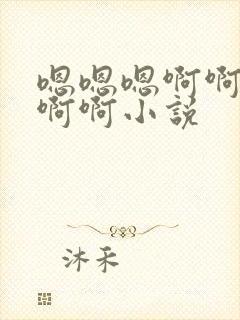 嗯嗯嗯啊啊
啊啊小説
沐禾